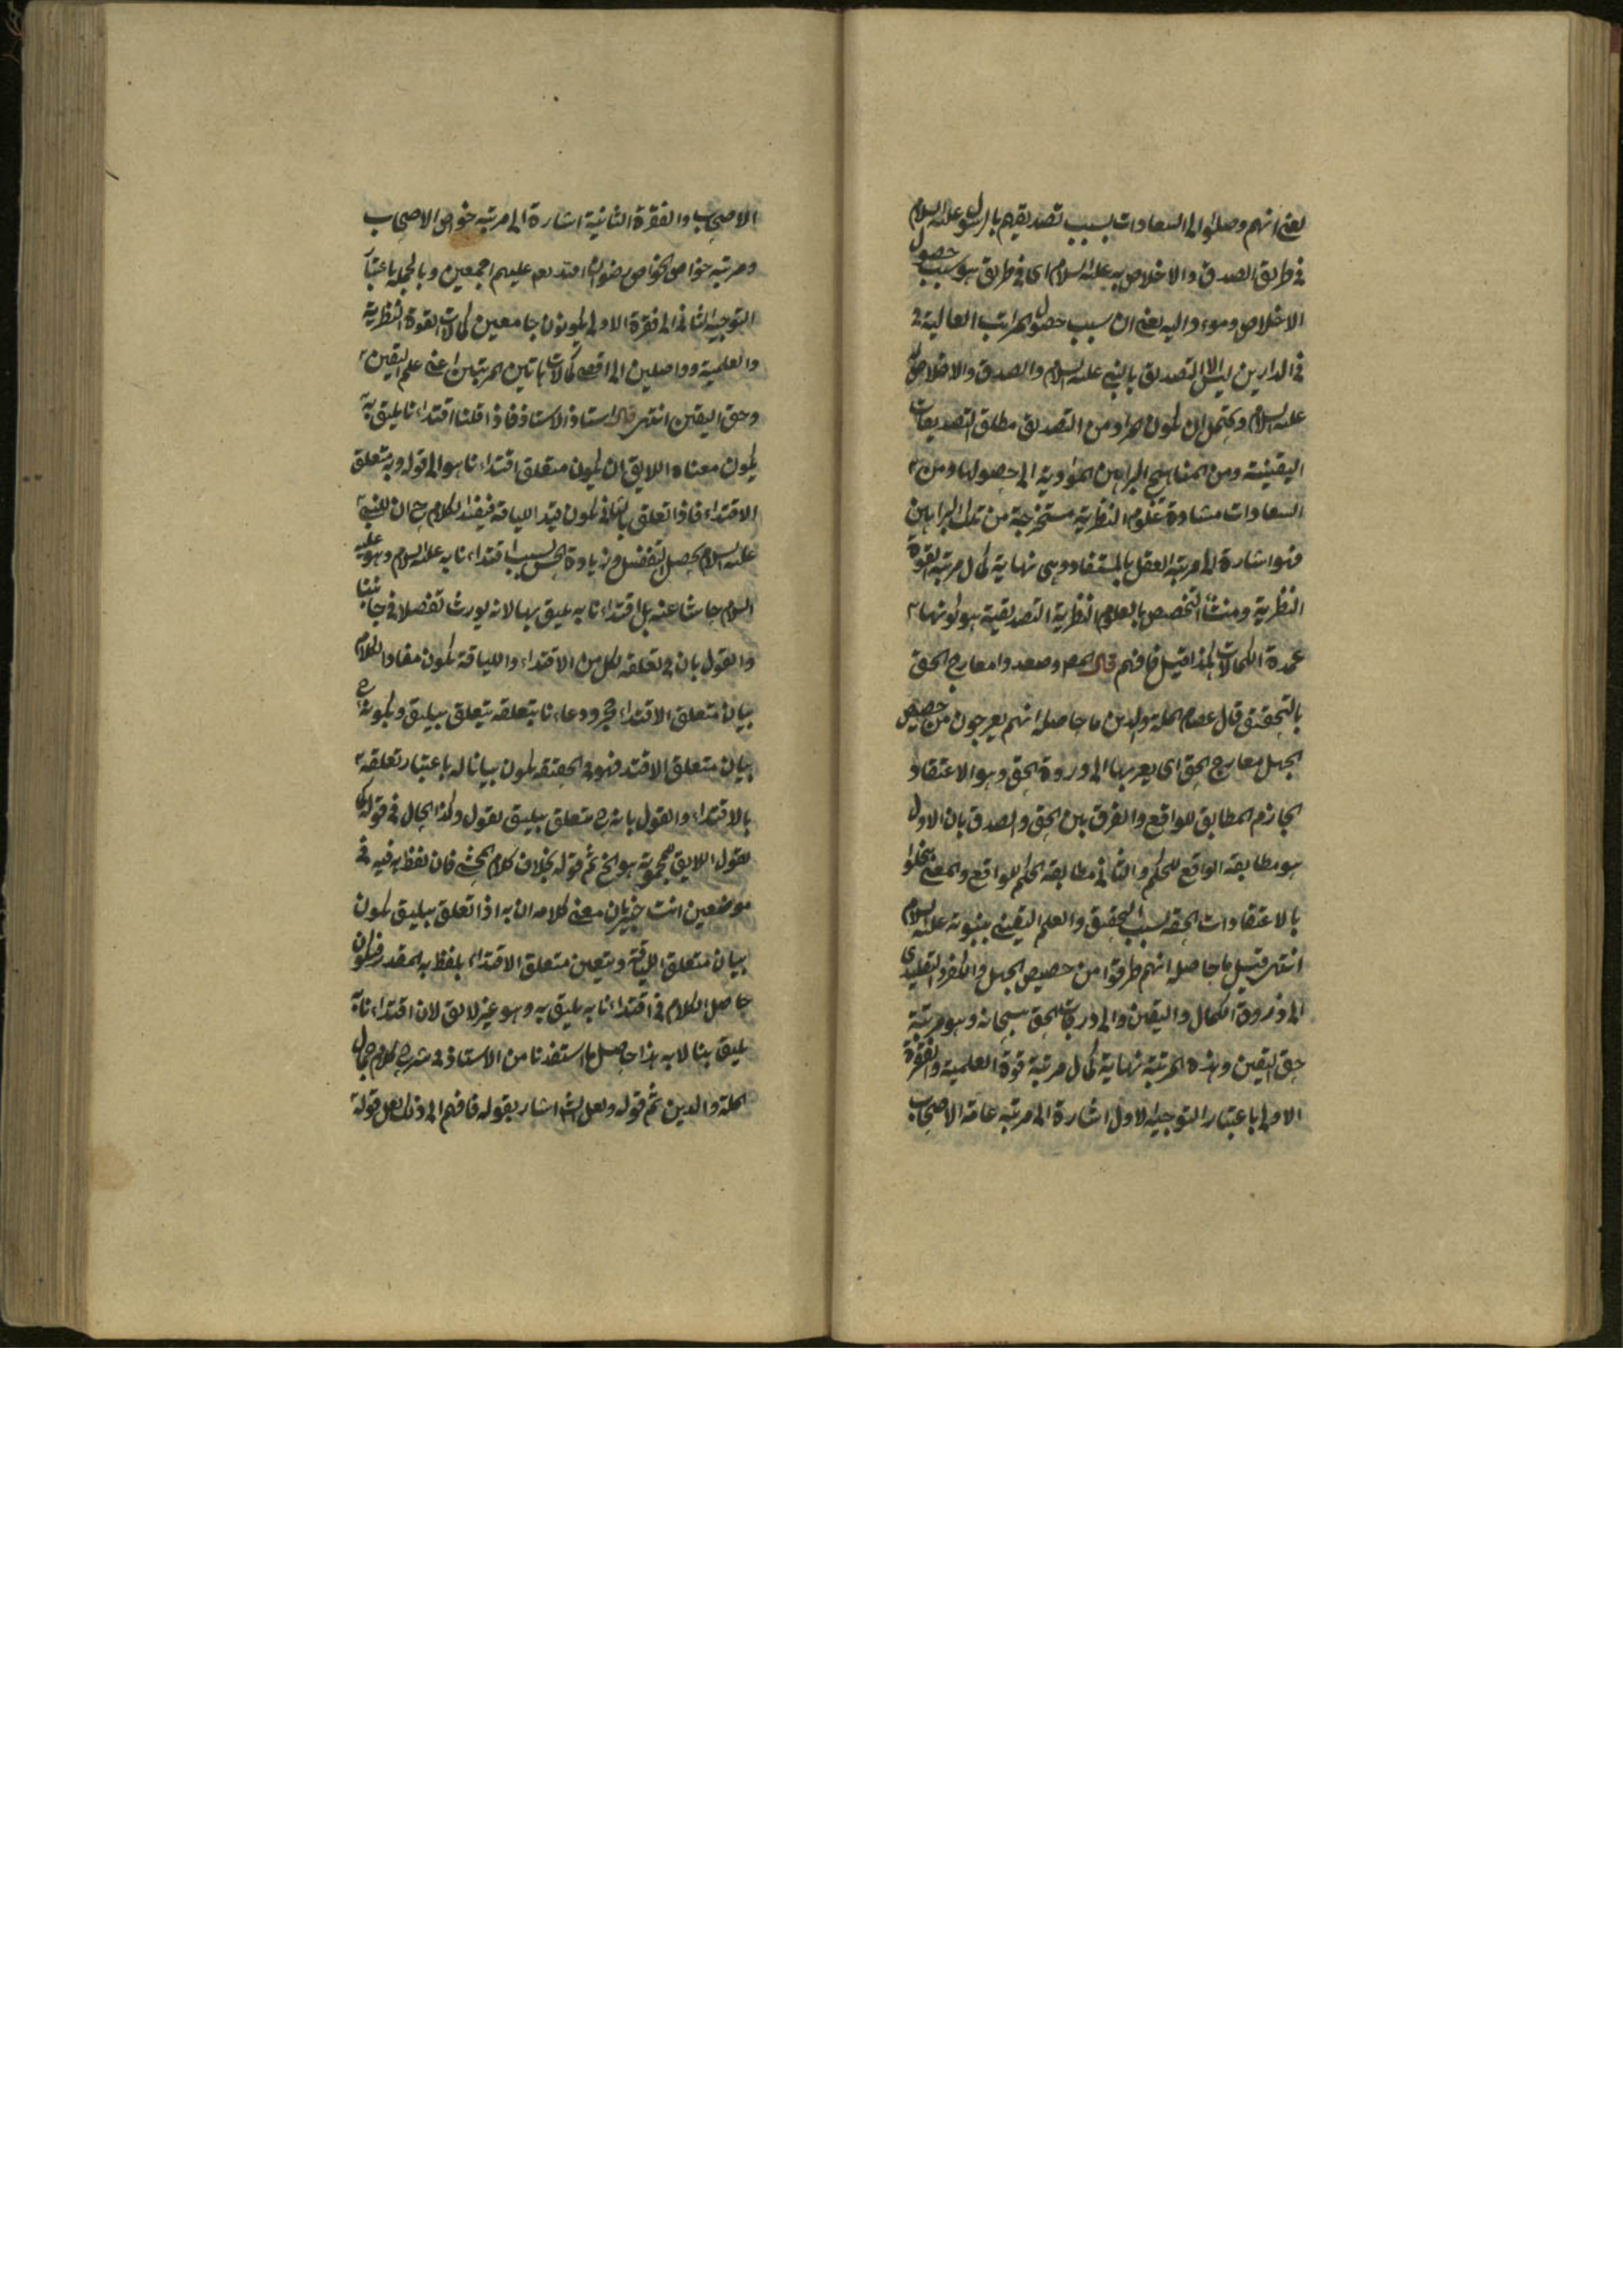 يعني انهم وصلوا الى السعادات بسبب تصديقهم بالرسول عليه السلام
في طريق الصدق والاخلاص به عليه السلام اى في طريق هو سبب حصول
الاخلاص وموءد اليه يعني ان سبب حصول المراتب العالية
في الدارين ليس الا التصديق بالنبي عليه السلام والصدق والاخلاص
عليه السلام ويحتمل ان يكون المراد من التصديق مطلق التصديقات
اليقينية ومن المناهج البراهين المؤدية الى حصولها ومن
السعادات مشادة علوم النظرية مستخرجة من تلك البراهين
فهو اشارة الى مرتبة العقل بالمستفاد وهى نهاية كمال مرتبة القوة
النظرية ومنشأ التخصيص بالعلوم النظرية التصديقية هو كونها
عمدة الكمالات كذا قيل فافهم قال المص وصعدوا معارج الحق
بالتحقيق قال عصام الملة والدين ما حاصله انهم يعرجون من حضيض
الجهل معارج الحق اى يعرجها الى دروة الحق وهو الاعتقاد
الجازم المطابق للواقع والفرق بين الحق والصدق بان الاول
هو مطابقة الواقع للحكم والثاني مطابقة الحكم للواقع والمعنى تحلوا
بالاعتقادات الحقة بسبب التحقيق والعلم اليقيني بنبوته عليه السلام
انتهى قيل ما حاصله انهم طرقوا من حضيض الجهل والكفر والتقليدى
الى ذروة الكمال واليقين والى درجات الحق سبحانه وهو مرتبة
حق اليقين وهذه المرتبة نهاية كمال مرتبة قوة العلمية والفقرة
الاولى باعتبار التوجيه الاول اشارة الى مرتبة عامة الاصحاب
الاصحاب والفقرة الثانية اشارة الى مرتبة خواص الاصحاب
ومرتبة خواص الخواص رضوان الله تعم عليهم اجمعين وبالجملة باعتبار
التوجيه الثاني الى فقرة الاولى يكونون جامعين كمالات القوة النظرية
والعلمية وواصلين الى اقصى كمالات هاتين المرتبتين اعنى علم اليقين
وحق اليقين انتهى قال استاذ الاستاذ فاذا قلنا اقتداءنا يليق به
يكون معناه اللايق ان يكون متعلق اقتداءنا هو الى قوله وبه متعلق
الاقتداء فاذا تعلق بالثاني يكون قيد اللياقة فيفيد الكلام ح ان للنبي
عليه السلام يحصل التفضل وزيادة الحسن بسبب اقتداءنا به عليه السلام وهو عليه
السلام حاشا عنه بل اقتداءنا به يليق بها لانه يورث تفضلا في جانبنا
والقول بان في تعلقه لكل من الاقتداء واللياقة يكون مفاد الكلام
بيان متعلق الاقتداء مجرد دعاء نا بتعلقه يتعلق بيليق وبكونه ح
بيان متعلق الاقتد فهو في الحقيقة يكون بيانا له باعتبار تعلقه
بالاقتداء والقول بانه ح متعلق بيليق نقول وكذا الحال في قولك
نقول اللايق هو الخ ثم قوله بخلاف كلام المحشي فان لفظ به فيه في
موضعين انت خبير بان معنى كلامه ان به اذا تعلق بيليق يكون
بيان متعلق اللياقة ويتعين متعلق الاقتداء بلفظ به المقدر فيكون
حاصل الكلام في اقتداءنا به يليق به وهو غير لائق لان اقتداءنا به
يليق بنا لا به هذا حاصل ما استفدنا من الاستاذ في شرح كلام جمال
الملة والدين ثم قوله ولعل الش اشار بقوله فافهم الى ذلك لعل قوله